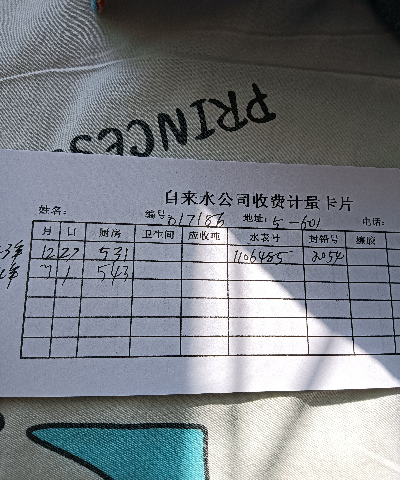 PRINCESS
自来水公司收费计量卡片
姓名: 编号: 017186 地址: 5-601 电话:
月 日 厨房 卫生间 应收吨 水表号 封铅号 橡胶
12 27 531 1106485 2054
7 1 543